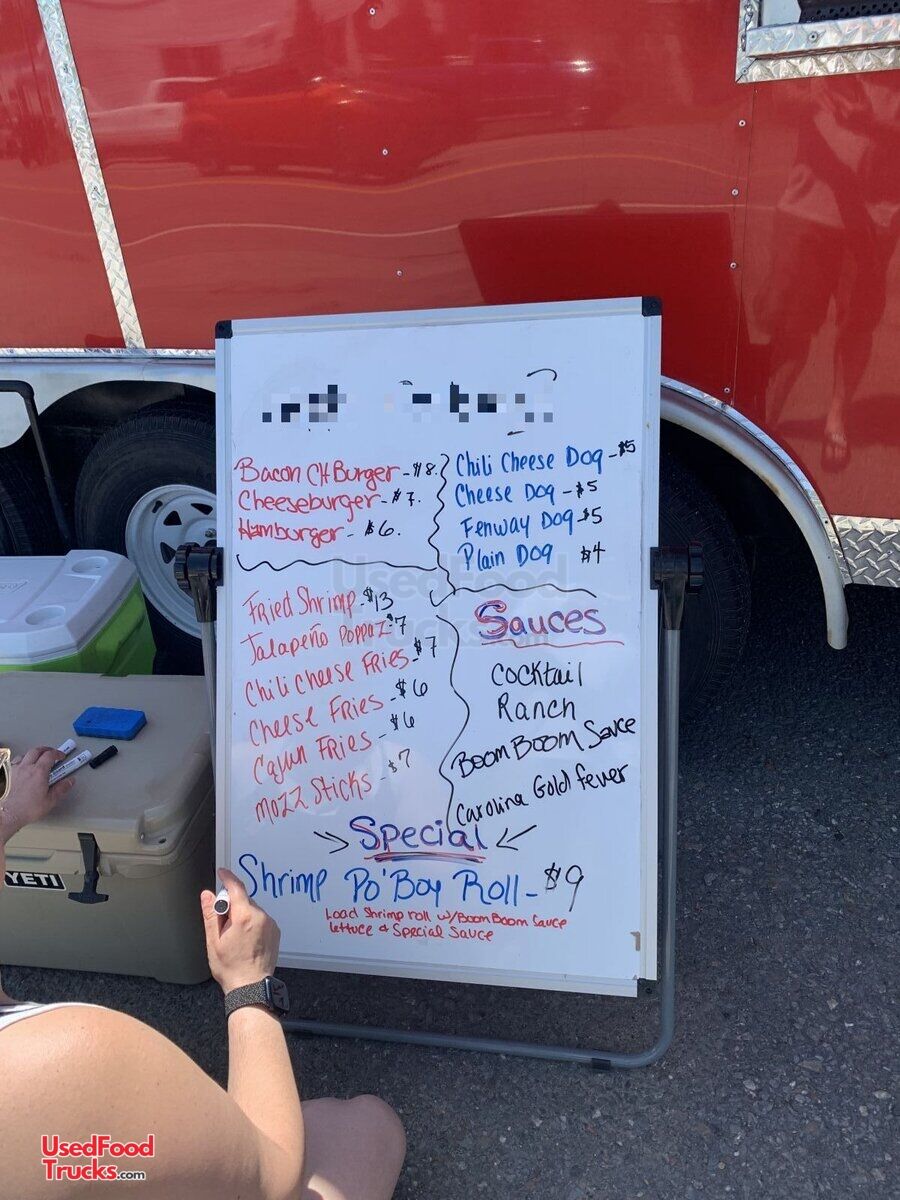 Bacon CH Burger - $8.
Cheeseburger - $7.
Hamburger - $6.
Chili Cheese Dog - $5
Cheese Dog - $5
Fenway Dog - $5
Plain Dog $4
Fried Shrimp - $13
Jalapeño Poppaz $7
Chili Cheese Fries - $7
Cheese Fries - $6
Cajun Fries - $6
Mozz Sticks - $7
Sauces
Cocktail
Ranch
Boom Boom Sauce
Carolina Gold Fever
Special
Shrimp Po'Boy Roll - $9
Load Shrimp roll w/Boom Boom Sauce
lettuce & Special Sauce
YETI
UsedFood
Trucks.com
UsedFood
Trucks.com